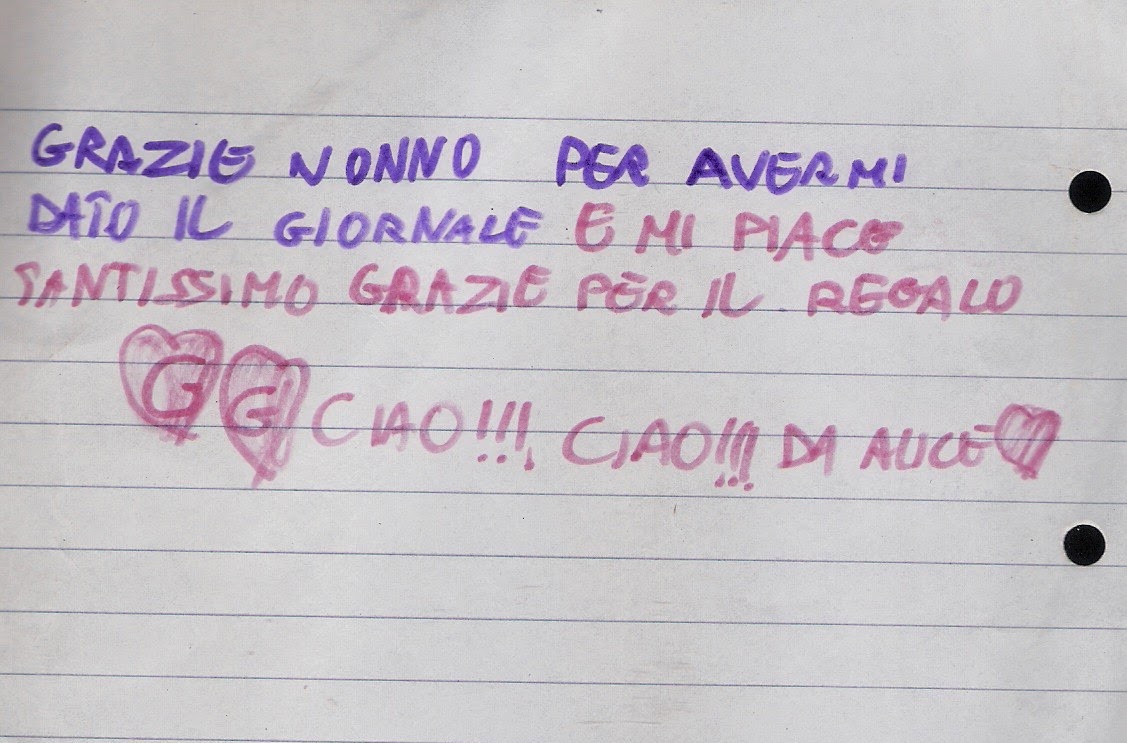 GRAZIE NONNO PER AVERMI
DATO IL GIORNALE E MI PIACE
TANTISSIMO GRAZIE PER IL REGALO
G G CIAO!!! CIAO!!! DA ALICE